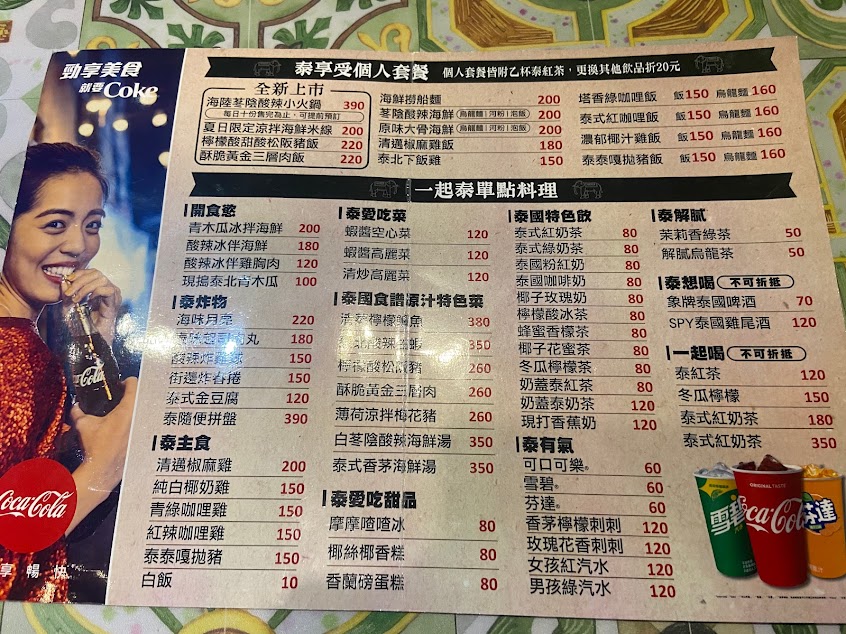 勁享美食
就要Coke
Coca-Cola
Coca-Cola
享暢快
泰享受個人套餐 個人套餐皆附乙杯泰紅茶，更換其他飲品折20元
全新上市
海陸荃陰酸辣小火鍋 390
每日十份售完為止、可提前預訂
夏日限定涼拌海鮮米線 200
檸檬酸甜酸松阪豬飯 220
酥脆黃金三層肉飯 220
海鮮撈船麵 200
荃陰酸辣海鮮 烏龍麵|河粉|泡飯 200
原味大骨海鮮 烏龍麵|河粉|泡飯 200
清邁椒麻雞飯 180
泰北下飯雞 150
塔香綠咖哩飯 飯150 烏龍麵160
泰式紅咖哩飯 飯150 烏龍麵160
濃郁椰汁雞飯 飯150 烏龍麵160
泰泰嘎拋豬飯 飯150 烏龍麵160
一起泰單點料理
開食慾
青木瓜冰拌海鮮 200
酸辣冰伴海鮮 180
酸辣冰伴雞胸肉 120
現搗泰北青木瓜 100
泰炸物
海味月亮 220
丸 180
酸辣炸雞 150
街邊炸春捲 150
泰式金豆腐 120
泰隨便拼盤 390
泰主食
清邁椒麻雞 200
純白椰奶雞 150
青綠咖哩雞 150
紅辣咖哩雞 150
泰泰嘎拋豬 150
白飯 10
泰愛吃菜
蝦醬空心菜 120
蝦醬高麗菜 120
清炒高麗菜 120
泰國食譜原汁特色菜
檸檬 魚 380
酸辣 蝦 350
檸檬酸松阪豬 260
酥脆黃金三層肉 260
薄荷涼拌梅花豬 260
白荃陰酸辣海鮮湯 350
泰式香茅海鮮湯 350
泰愛吃甜品
摩摩喳喳冰 80
椰絲椰香糕 80
香蘭磅蛋糕 80
泰國特色飲
泰式紅奶茶 80
泰式綠奶茶 80
泰國粉紅奶 80
泰國咖啡奶 80
椰子玫瑰奶 80
檸檬酸冰茶 80
蜂蜜香檬茶 80
椰子花蜜茶 80
冬瓜檸檬茶 80
奶蓋泰紅茶 80
奶蓋泰奶茶 120
現打香蕉奶 120
泰有氣
可口可樂® 60
雪碧® 60
芬達® 60
香茅檸檬刺刺 120
玫瑰花香刺刺 120
女孩紅汽水 120
男孩綠汽水 120
泰解膩
茉莉香綠茶 50
解膩烏龍茶 50
泰想喝 不可折抵
象牌泰國啤酒 70
SPY泰國雞尾酒 120
一起喝 不可折抵
泰紅茶 120
冬瓜檸檬 150
泰式紅奶茶 180
泰式紅奶茶 350
雪碧
ORIGINAL TASTE
Coca-Cola
芬達